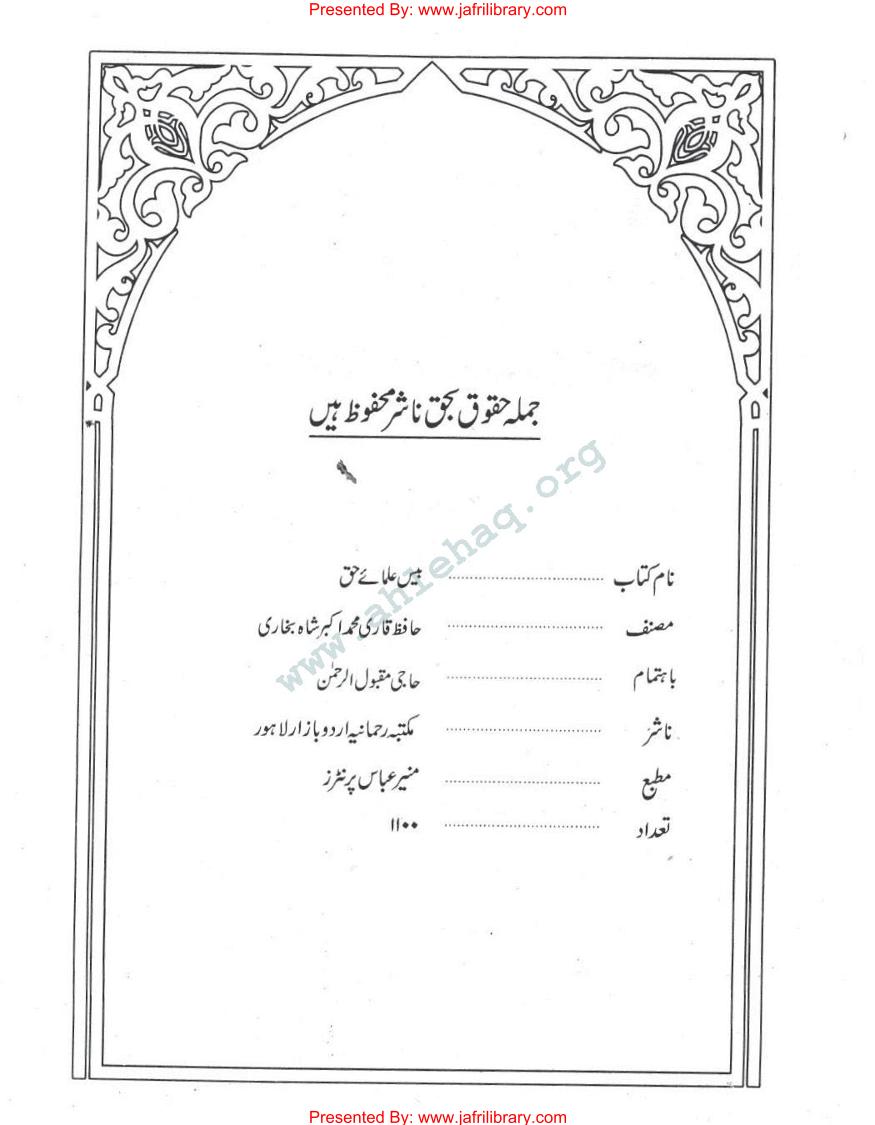 Presented By: www.jafrilibrary.com
جملہ حقوق بحق ناشر محفوظ ہیں
نام کتاب ........................ بیس علمائے حق
مصنف ........................ حافظ قاری محمد اکبر شاہ بخاری
باہتمام ........................ حاجی مقبول الرحمٰن
ناشر ........................ مکتبہ رحمانیہ اردو بازار لاہور
مطبع ........................ منیر عباس پرنٹرز
تعداد ........................ ۱۱۰۰
www.ahlehaq.org
Presented By: www.jafrilibrary.com